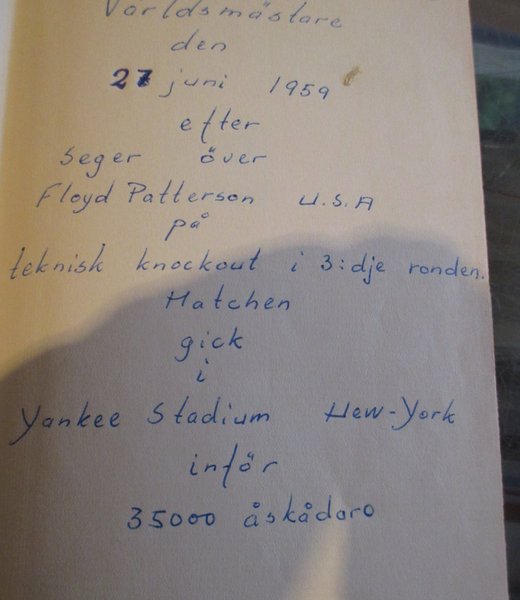 Världsmästare
den
27 juni 1959
efter
seger över
Floyd Patterson U.S.A
på
teknisk knockout i 3:dje ronden.
Matchen
gick
i
Yankee Stadium New-York
inför
35000 åskådare